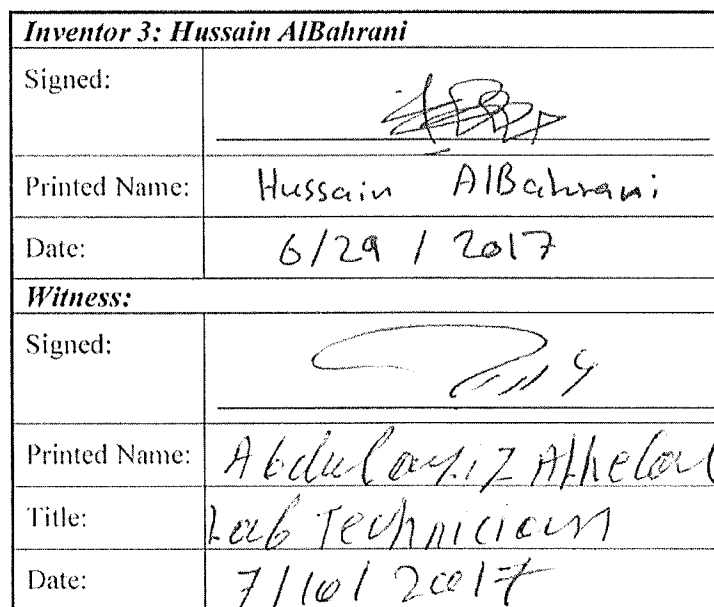 Inventor 3: Hussain AlBahrani
Signed:
Printed Name: Hussain AlBahrani
Date: 6/29/2017
Witness:
Signed:
Printed Name: Abdulaziz
Title: Lab Technician
Date: 7/10/2017